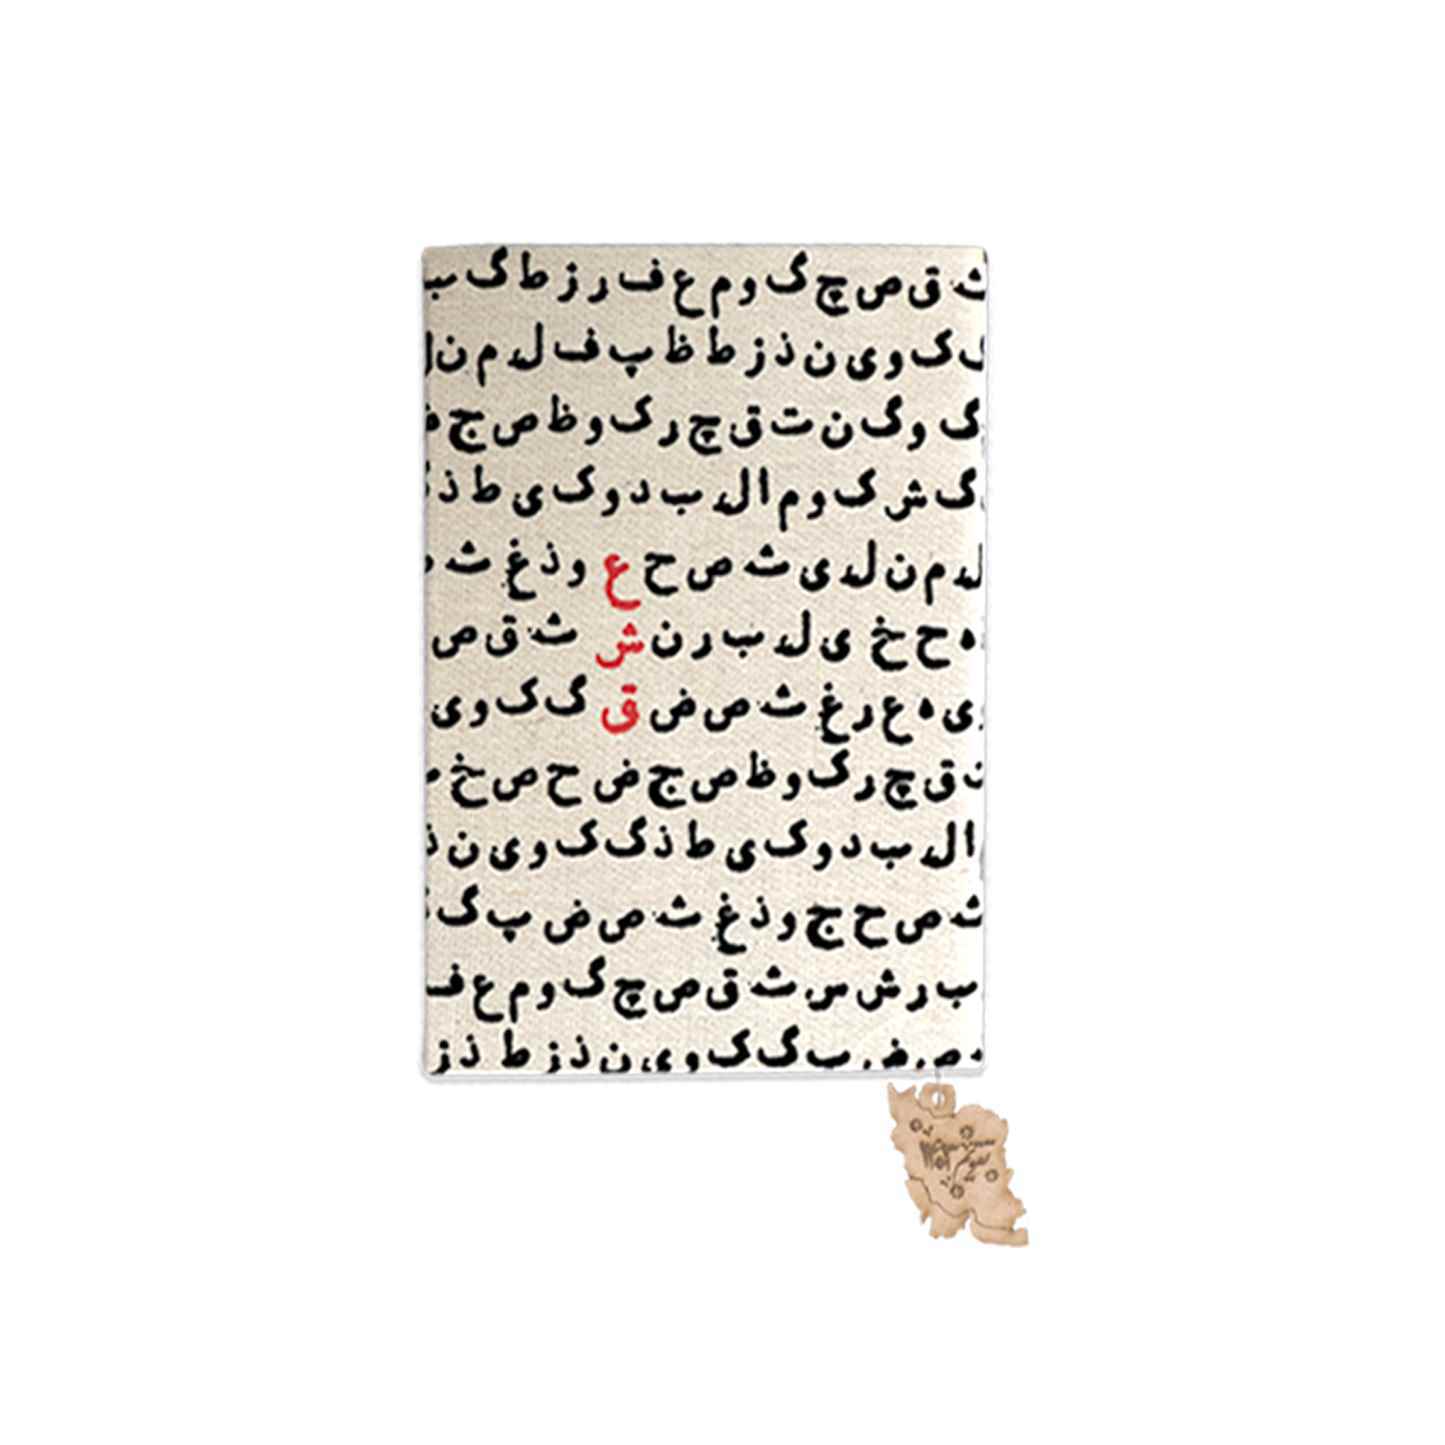 ث ق ص چ گ و م ع ف ر ز ط گ ب
ک و ی ن ذ ز ط ظ پ ف ل م ن ل
گ و گ ن ت ق چ ر ک و ظ ص ج
گ ش ک و م ا ل ب د و ک ی ط ذ
ل م ن ل ی ث ص ح ع و ذ غ ث
ه ح خ ی ل ب ر ن ش ث ق ص
ی ه ع ر غ ث ص ض ق گ ک و ی
ق چ ر ک و ظ ص ج ض ح ص خ
ا ل ب د و ک ی ط ذ گ ک و ی ن ذ
ث ص ح ج و ذ غ ث ص ض پ گ
ب ر ش س ث ق ص چ گ و م ع ف
ص ض ب گ ک و ی ن ذ ز ط ذ ز